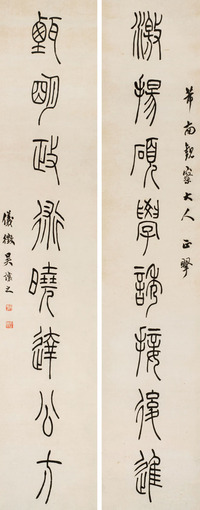 芾南觀察大人正擘
激揚碩學誘接後進
甄明政術曉達公方
儀徵吳讓之